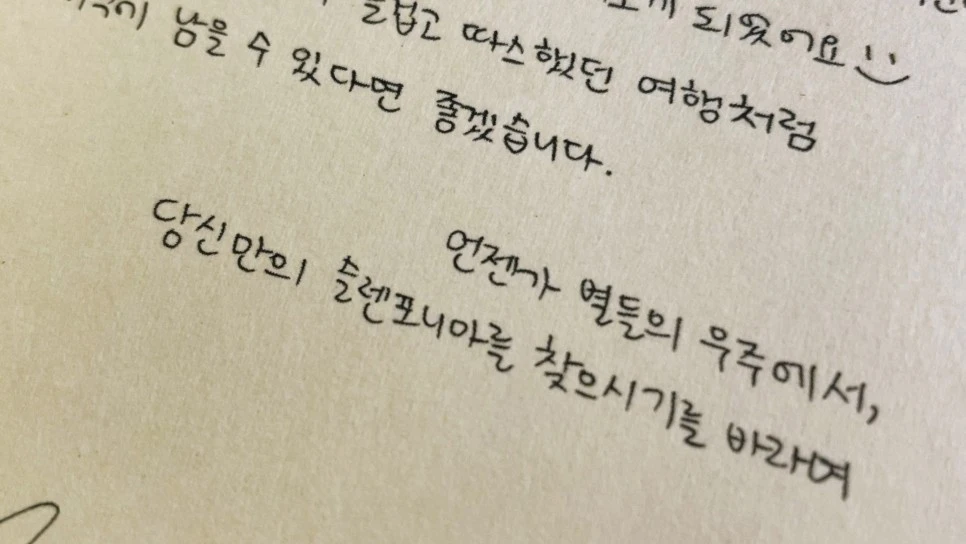 되었어요
즐겁고 따스했던 여행처럼
남을 수 있다면 좋겠습니다.
언젠가 별들의 우주에서,
당신만의 슬렌포니아를 찾으시기를 바라며